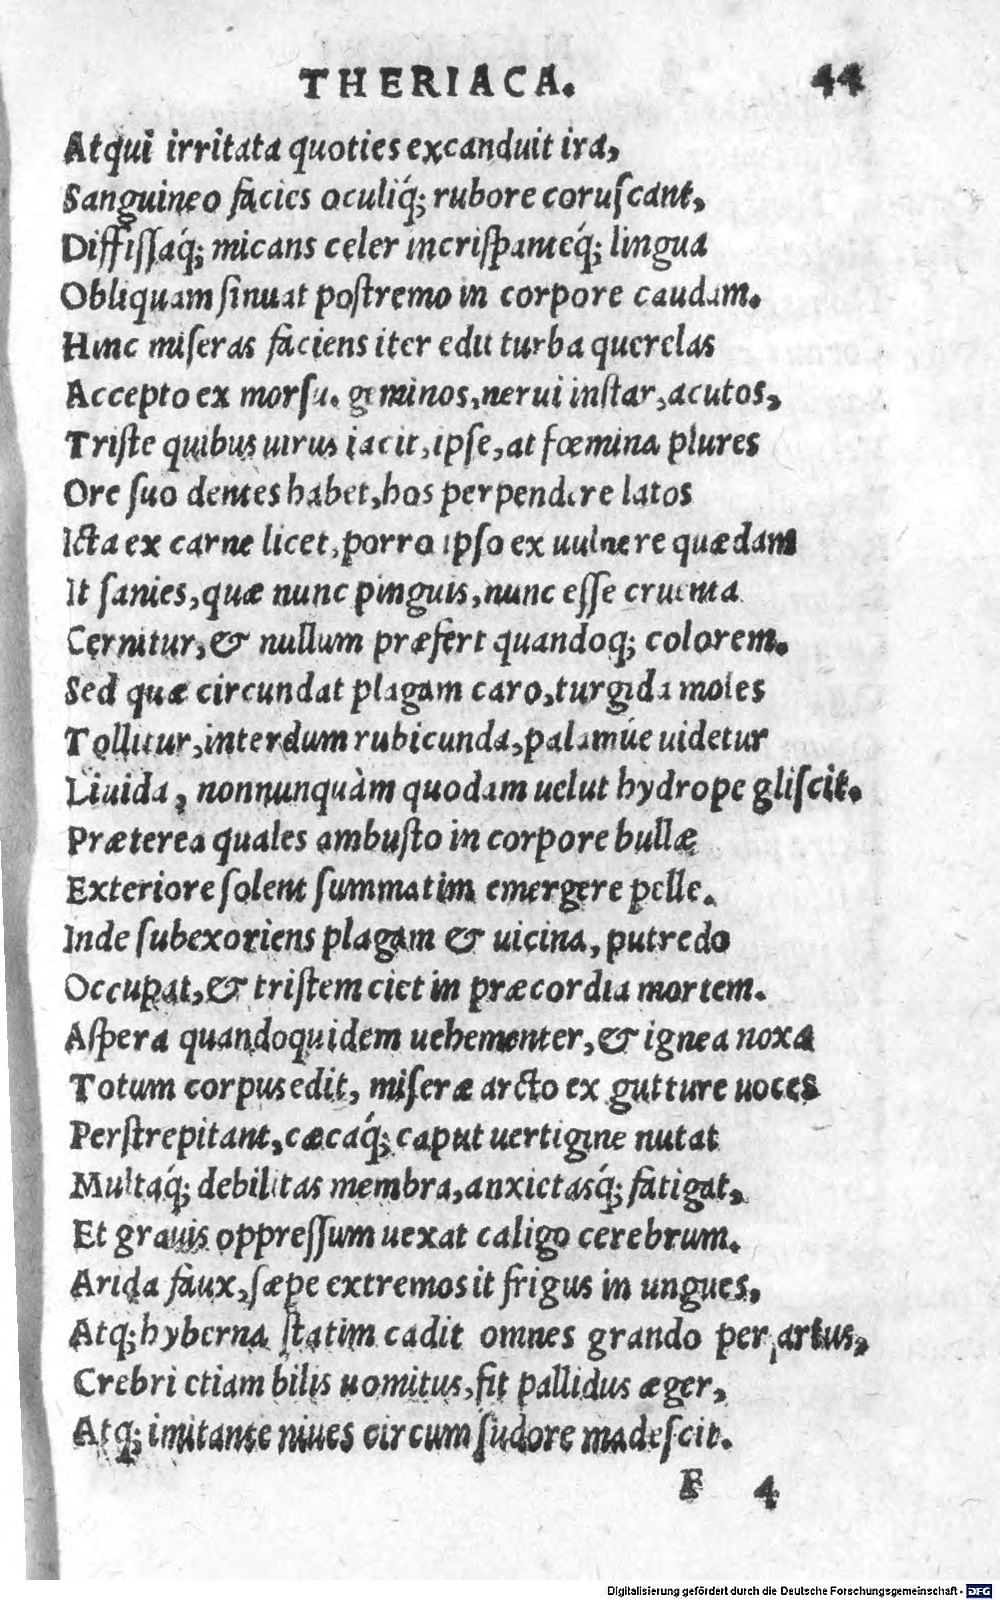 THERIACA. 44
Atqui irritata quoties excanduit ira,
Sanguineo facies oculiq́; rubore coruſcant,
Diffiſſaq́; micans celer incriſpanteq́; lingua
Obliquam ſinuat poſtremo in corpore caudam.
Hinc miſeras faciens iter edit turba querelas
Accepto ex morſu. geminos, nerui inſtar, acutos,
Triſte quibus uirus iacit, ipſe, at fœmina plures
Ore ſuo dentes habet, hos perpendere latos
Icta ex carne licet, porro ipſo ex uulnere quædam
It ſanies, quæ nunc pinguis, nunc eſſe cruenta
Cernitur, & nullum præfert quandoq; colorem.
Sed quæ circundat plagam caro, turgida moles
Tollitur, interdum rubicunda, palamúe uidetur
Liuida, nonnunquàm quodam uelut hydrope gliſcit.
Præterea quales ambuſto in corpore bullæ
Exteriore ſolent ſummatim emergere pelle.
Inde ſubexoriens plagam & uicina, putredo
Occupat, & triſtem ciet in præcordia mortem.
Aſpera quandoquidem uehementer, & ignea noxa
Totum corpus edit, miſeræ arcto ex gutture uoces
Perſtrepitant, cæcaq́; caput uertigine nutat
Multaq́; debilitas membra, anxietasq́; fatigat,
Et grauis oppreſſum uexat caligo cerebrum.
Arida faux, ſæpe extremos it frigus in ungues,
Atq; hyberna ſtatim cadit omnes grando per artus,
Crebri etiam bilis uomitus, fit pallidus æger,
Atq; imitante niues circum ſudore madeſcit.
F 4
Digitalisierung gefördert durch die Deutsche Forschungsgemeinschaft - DFG